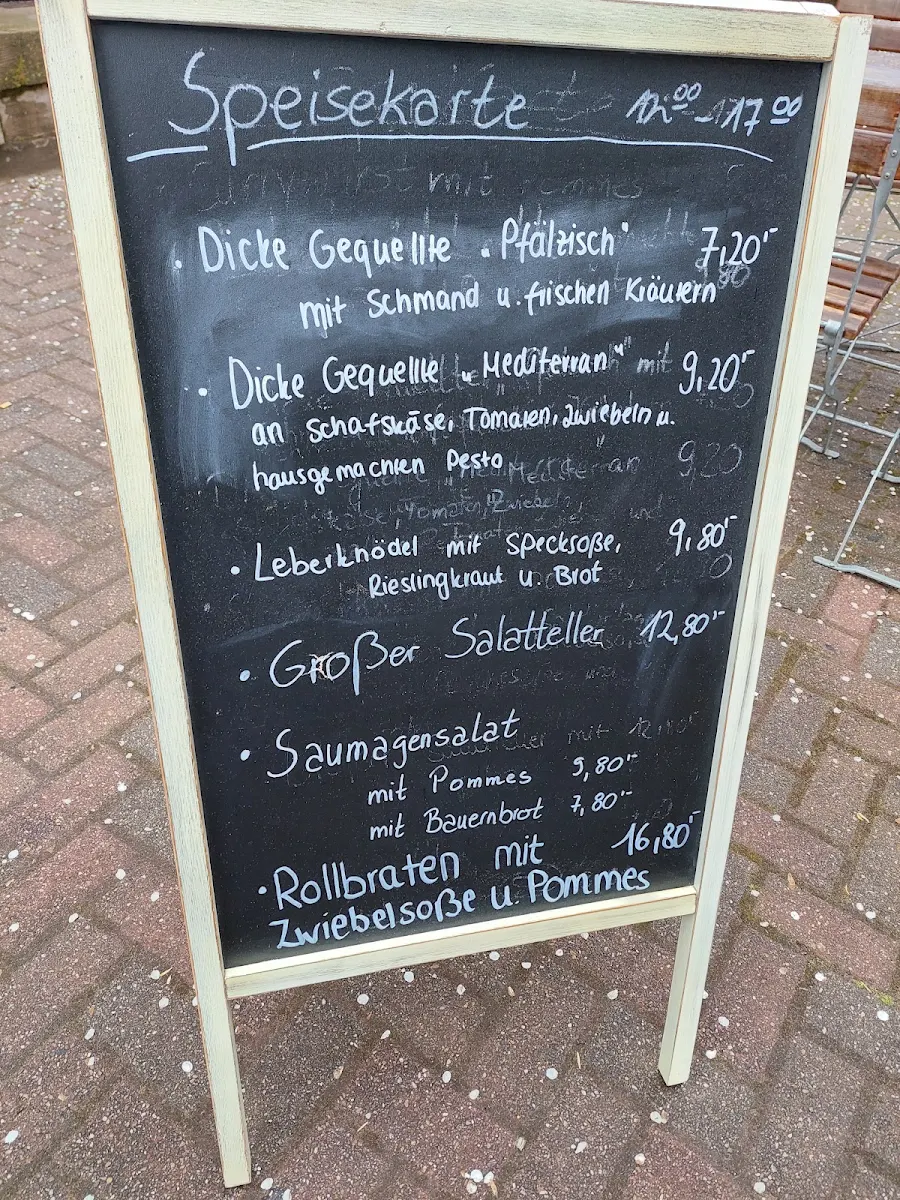 Speisekarte 12:00 - 17 00
Dicke Gequellte "Pfälzisch" 7,20
mit Schmand u. frischen Kräutern
Dicke Gequellte "Mediterran" mit 9,20
an Schafskäse, Tomaten, zwiebeln u.
hausgemachten Pesto
Leberknödel mit Specksoße, 9,80
Rieslingkraut u. Brot
Großer Salatteller 12,80
Saumagensalat
mit Pommes 9,80
mit Bauernbrot 7,80
Rollbraten mit 16,80
Zwiebelsoße u. Pommes